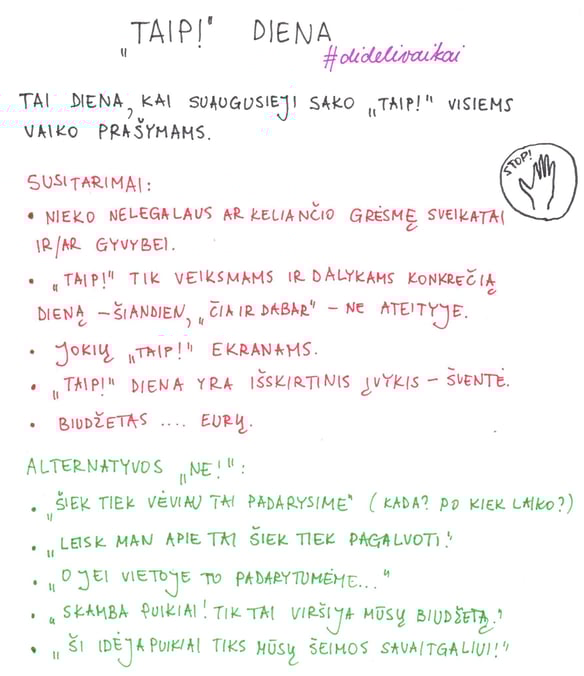 „TAIP!" DIENA
#didelivaikai
TAI DIENA, KAI SUAUGUSIEJI SAKO „TAIP!" VISIEMS
VAIKO PRAŠYMAMS.
STOP!
SUSITARIMAI:
• NIEKO NELEGALAUS AR KELIANČIO GRĖSMĘ SVEIKATAI
IR/AR GYVYBEI.
• „TAIP!" TIK VEIKSMAMS IR DALYKAMS KONKREČIĄ
DIENĄ – ŠIANDIEN, „ČIA IR DABAR" – NE ATEITYJE.
• JOKIŲ „TAIP!" EKRANAMS.
• „TAIP!" DIENA YRA IŠSKIRTINIS ĮVYKIS – ŠVENTĖ.
• BIUDŽETAS .... EURŲ.
ALTERNATYVOS „NE!":
• „ŠIEK TIEK VĖVIAU TAI PADARYSIME" (KADA? PO KIEK LAIKO?)
• „LEISK MAN APIE TAI ŠIEK TIEK PAGALVOTI."
• „O JEI VIETOJE TO PADARYTUMĖME..."
• „SKAMBA PUIKIAI! TIK TAI VIRŠIJA MŪSŲ BIUDŽETĄ."
• „ŠI IDĖJA PUIKIAI TIKS MŪSŲ ŠEIMOS SAVAITGALIUI!"